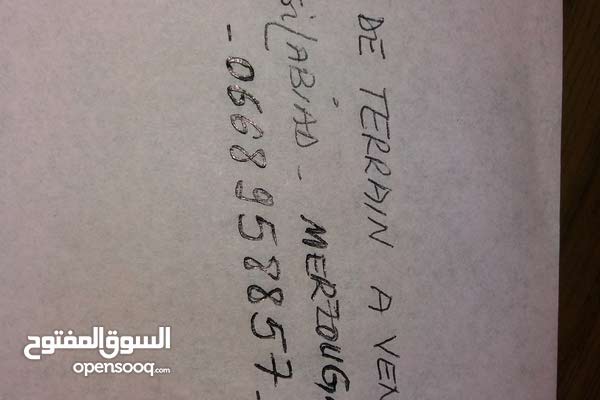 DE TERRAIN A VEN
si LABIAD - MERZOUG
- 0668958857 -
السوق المفتوح
opensooq.com